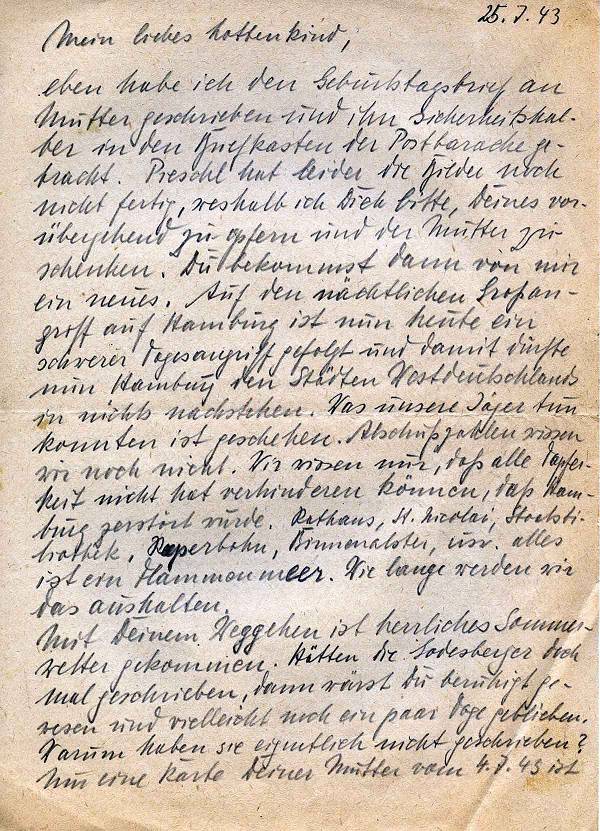 25.7.43
Mein liebes Lottenkind,
eben habe ich den Geburtstagsbrief an
Mutter geschrieben und ihn sicherheitshal-
ber in den Briefkasten der Postbarache ge-
bracht. Pieschl hat leider die Bilder noch
nicht fertig, weshalb ich Dich bitte, Deines vor-
übergehend zu opfern und der Mutter zu
schenken. Du bekommst dann von mir
ein neues. Auf den nächtlichen Großan-
griff auf Hamburg ist nun heute ein
schwerer Tagesangriff gefolgt und damit dürfte
nun Hamburg den Städten Westdeutschlands
in nichts nachstehen. Was unsere Jäger tun
konnten ist geschehen. Abschußzahlen wissen
wir noch nicht. Wir wissen nur, daß alle Tapfer-
keit nicht hat verhinderen können, daß Ham-
burg zerstört wurde. Rathaus, St. Nicolai, Staatsbi-
bliothek, Reeperbahn, Binnenalster, usw. alles
ist ein Flammenmeer. Wie lange werden wir
das aushalten.
Mit Deinem Weggehen ist herrliches Sommer-
wetter gekommen. Hätten die Godesberger doch
mal geschrieben, dann wärst Du beruhigt ge-
wesen und vielleicht noch ein paar Tage geblieben.
Warum haben sie eigentlich nicht geschrieben?
Nur eine Karte Deiner Mutter vom 4.7.43 ist